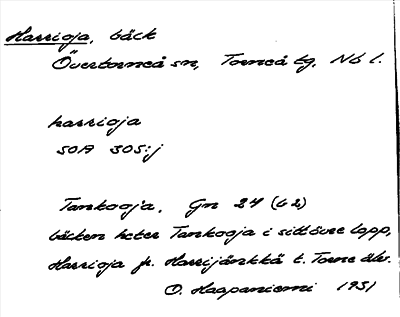 Harrioja, bäck
Övertorneå sn, Torneå tg, Nb l.
harrioja
SOA 305:j
Tankooja, Gn 24 (62)
bäcken heter Tankooja i sitt övre lopp,
Harrioja fr. Harrijänkkä t. Torne älv.
O. Haapaniemi 1951